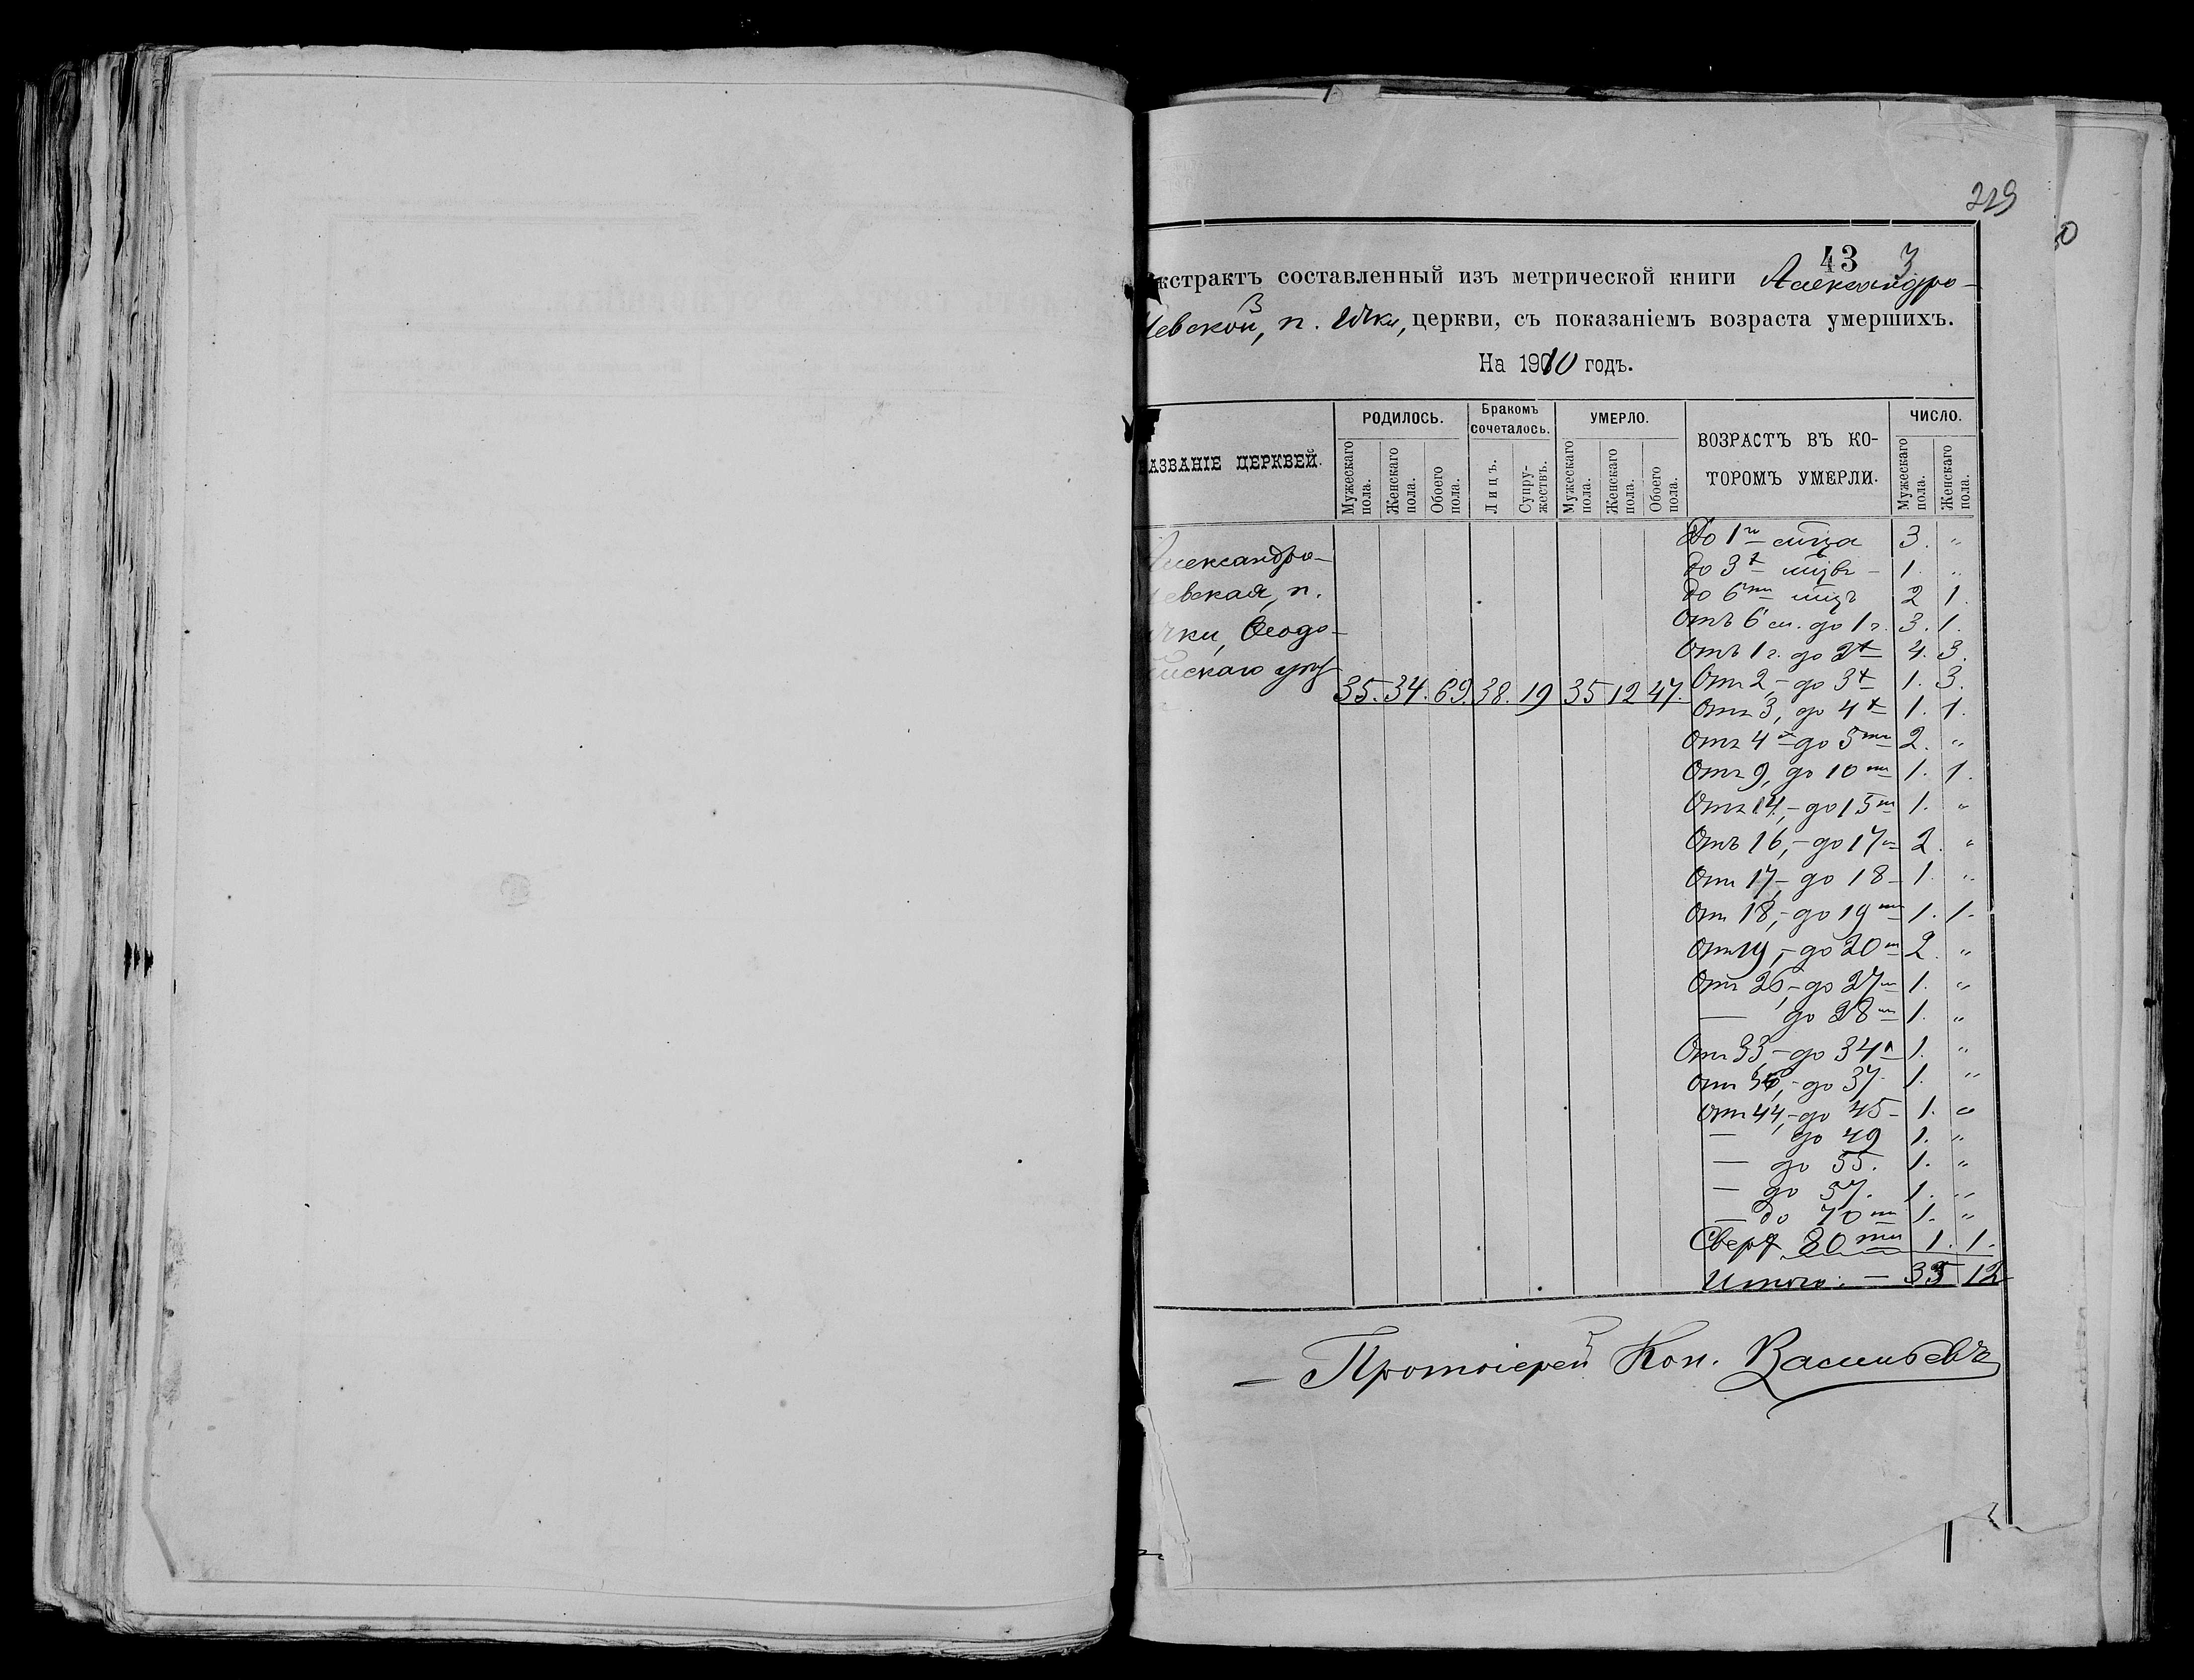 219
43 3
кстрактъ составленный изъ метрической книги Александро-
Невской, п. Ички, церкви, съ показаніемъ возраста умершихъ.
На 1910 годъ.
АЗВАНІЕ ЦЕРКВЕЙ.
РОДИЛОСЬ.
Мужескаго пола.
Женскаго пола.
Обоего пола.
Бракомъ сочеталось.
Лицъ.
Супружествъ.
УМЕРЛО.
Мужескаго пола.
Женскаго пола.
Обоего пола.
ВОЗРАСТЪ ВЪ КО-
ТОРОМЪ УМЕРЛИ.
ЧИСЛО.
Мужескаго пола.
Женскаго пола.
Александро-
евская, п.
чки, Ѳеодо-
ійскаго
35. 34. 69. 38. 19 35 12 47.
До 1го мѣца 3. "
до 3х мцвъ - 1. "
до 6ти мцъ 2 1.
Отъ 6 м. до 1 г. 3. 1.
Отъ 1 г. до 2х 4. 3.
Отъ 2, - до 3х 1. 3.
Отъ 3, до 4х 1. 1.
Отъ 4х до 5ти 2. "
Отъ 9, до 10ти 1. 1.
Отъ 14, - до 15ти 1. "
Отъ 16, - до 17ти 2. "
Отъ 17, - до 18 - 1. "
От 18, - до 19ти 1. 1.
От 19, - до 20ти 2. "
Отъ 26, - до 27ти 1. "
— до 28ми 1. "
Отъ 33, - до 34х 1. "
От 36, - до 37. 1. "
От 44, - до 45 - 1. "
— до 49 1. "
— до 55. 1. "
— до 57. 1. "
— до 70ти 1. "
Сверх 80ти 1. 1.
Итого: — 35 12
— Протоіерей Кон. Васильевъ